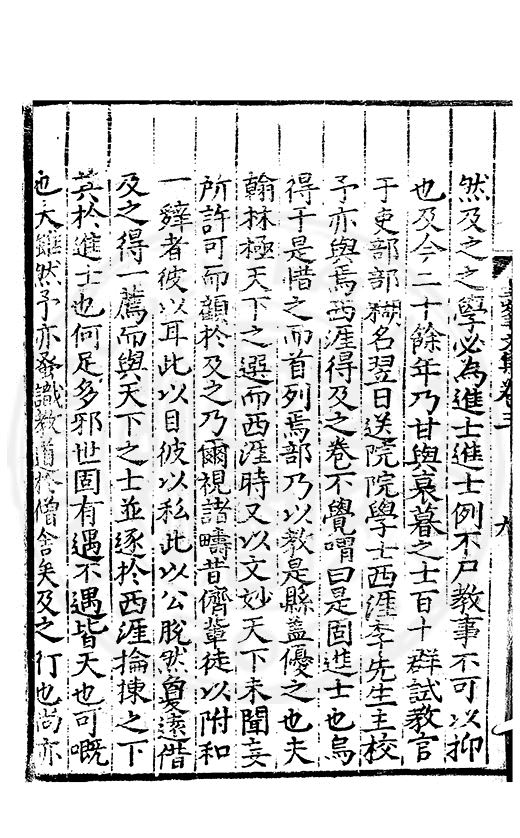 然及之之學必為進士進士例不尸教事不可以抑
也及今二十餘年乃甘與衰暮之士百十群試教官
于吏部部糊名翌日送院院學士西涯李先生主校
予亦與焉西涯得及之卷不覺喟曰是固進士也烏
得于是惜之而首列焉部乃以教是縣蓋優之也夫
翰林極天下之選而西涯時又以文妙天下未聞妄
所許可而顧於及之乃爾視諸疇昔儕輩徒以附和
一辭者彼以耳此以目彼以私此以公脫然夐遠借
及之得一薦而與天下之士並逐於西涯掄揀之下
其於進士也何足多邪世固有遇不遇皆天也可嘅
也夫雖然予亦蚤識教道於僧舍矣及之行也尚亦
文集卷三
九